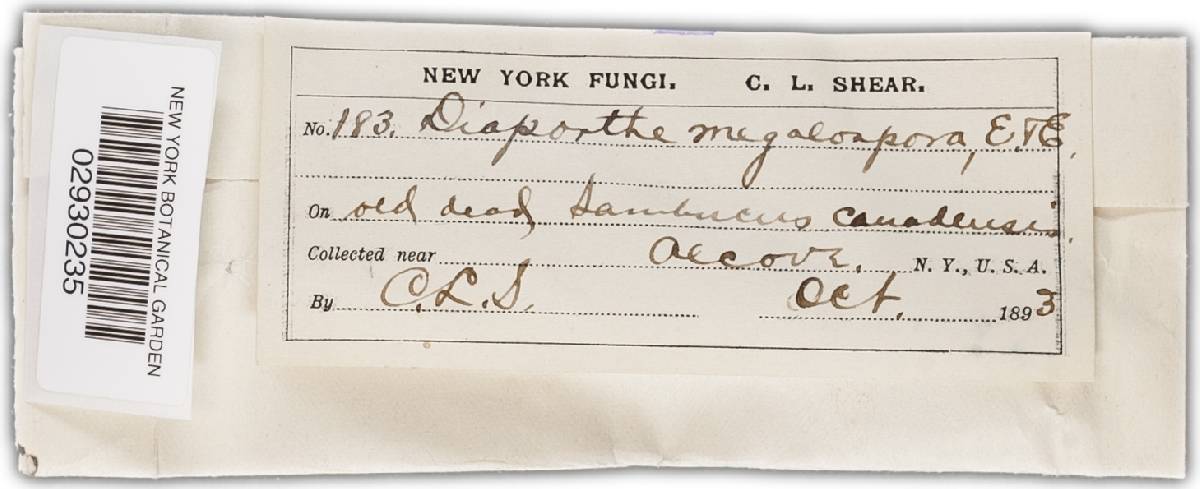 NEW YORK FUNGI. C. L. SHEAR.
No. 183. Diaporthe megalospora, E. & E.
On old dead Sambucus canadensis.
Collected near Alcove. N. Y., U. S. A.
By C. L. S. Oct. 1893
NEW YORK BOTANICAL GARDEN
02930235